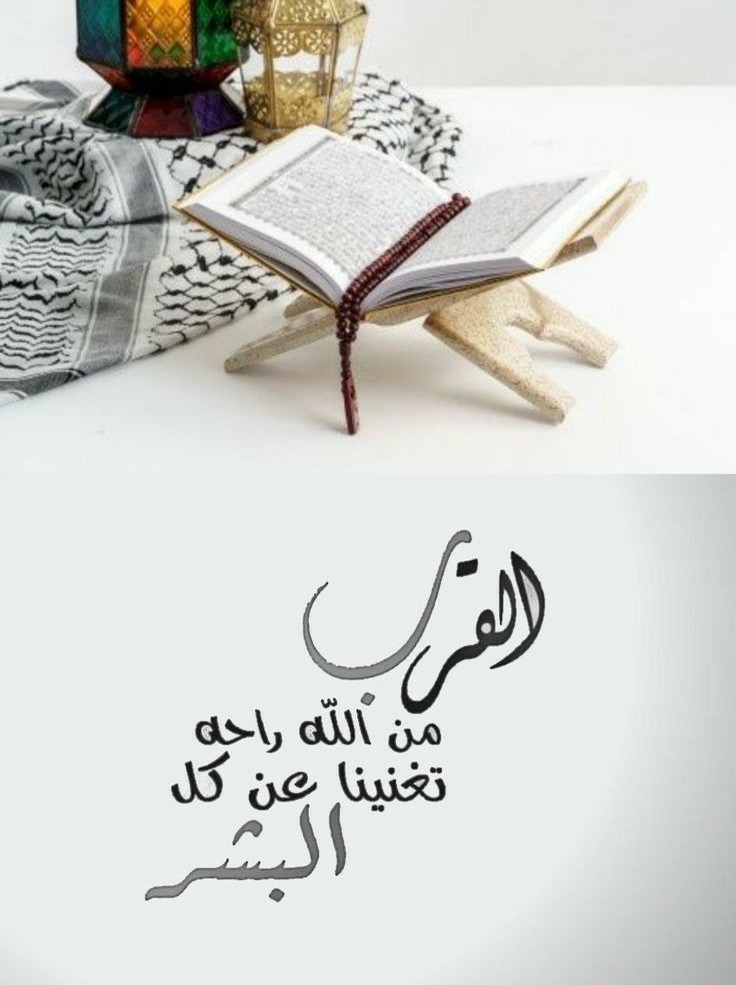 القرب
من الله راحه
تغنينا عن كل
البشر